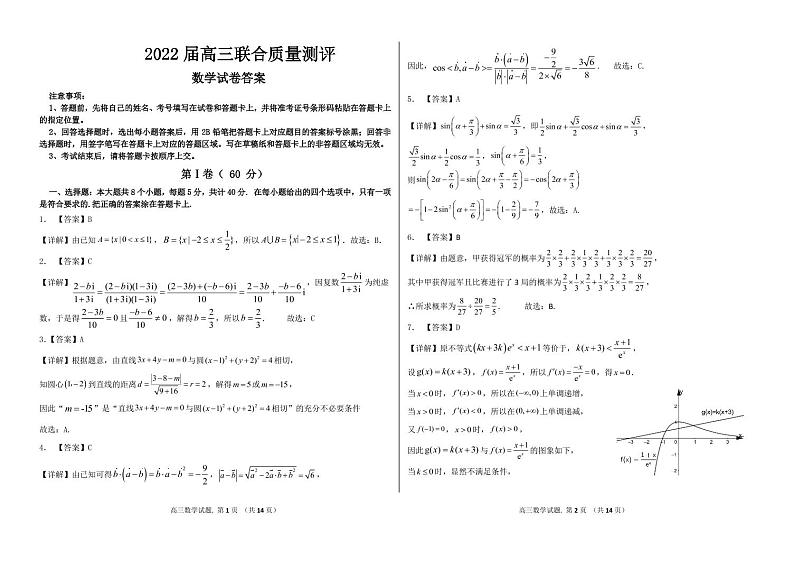 2022 届高三联合质量测评
数学试卷答案
注意事项：
1、答题前，先将自己的姓名、考号填写在试卷和答题卡上，并将准考证号条形码粘贴在答题卡上
的指定位置。
2、回答选择题时，选出每小题答案后，用 2B 铅笔把答题卡上对应题目的答案标号涂黑；回答非
选择题时，用签字笔写在答题卡上对应的答题区域。写在草稿纸和答题卡上的非答题区域均无效。
3、考试结束后，请将答题卡按顺序上交。
第 I 卷（ 60 分）
一、选择题：本大题共 8 个小题，每题 5 分，共计 40 分. 在每小题给出的四个选项中，只有一项
是符合要求的.把正确的答案涂在答题卡上.
1. 【答案】B
【详解】由已知 A={x|0<x≤1}，B={x|-2≤x≤1/2}，所以 A∪B={x|-2≤x≤1}. 故选：B.
2. 【答案】C
【详解】(2-bi)/(1+3i)=(2-bi)(1-3i)/((1+3i)(1-3i))=((2-3b)+(-b-6)i)/10=(2-3b)/10+(-b-6)/10 i，因复数(2-bi)/(1+3i)为纯虚
数，于是得(2-3b)/10=0且(-b-6)/10≠0，解得b=2/3，所以b=2/3. 故选：C
3.【答案】A
【详解】根据题意，由直线3x+4y-m=0与圆(x-1)²+(y+2)²=4相切，
知圆心(1,-2)到直线的距离d=|3-8-m|/√(9+16)=r=2，解得m=5或m=-15，
因此“m=-15”是“直线3x+4y-m=0与圆(x-1)²+(y+2)²=4相切”的充分不必要条件
故选：A.
4. 【答案】C
【详解】由已知可得b·(a-b)=b·a-b²=-9/2，|a-b|=√(a²-2a·b+b²)=√6，
高三数学试题. 第 1 页 （共 14 页）
因此，cos<b,a-b>=b·(a-b)/(|b|·|a-b|)=(-9/2)/(2×√6)=-3√6/8. 故选：C.
5. 【答案】A
【详解】sin(α+π/3)+sinα=√3/3，即1/2 sinα+√3/2 cosα+sinα=√3/3，
√3/2 sinα+1/2 cosα=1/3，sin(α+π/6)=1/3，
则sin(2α-π/6)=sin(2α+π/3-π/2)=-cos(2α+π/3)
=-[1-2sin²(α+π/6)]=-(1-2/9)=-7/9. 故选：A.
6. 【答案】B
【详解】由题意，甲获得冠军的概率为2/3×2/3+2/3×1/3×2/3+1/3×2/3×2/3=20/27，
其中甲获得冠军且比赛进行了 3 局的概率为2/3×1/3×2/3+1/3×2/3×2/3=8/27，
∴所求概率为8/27÷20/27=2/5. 故选：B.
7. 【答案】D
【详解】原不等式(kx+3k)eˣ<x+1等价于，k(x+3)<(x+1)/eˣ，
设g(x)=k(x+3)，f(x)=(x+1)/eˣ，所以f'(x)=-x/eˣ=0，得x=0.
当x<0时，f'(x)>0，所以在(-∞,0)上单调递增，
当x>0时，f'(x)<0，所以在(0,+∞)上单调递减，
又f(-1)=0，x>0时，f(x)>0，
因此g(x)=k(x+3)与f(x)=(x+1)/eˣ的图象如下，
当k≤0时，显然不满足条件，
y
g(x)=k(x+3)
2
1
-3 -2 -1 0 1 2 3
f(x) = 1+x/eˣ
-1
-2
高三数学试题. 第 2 页 （共 14 页）